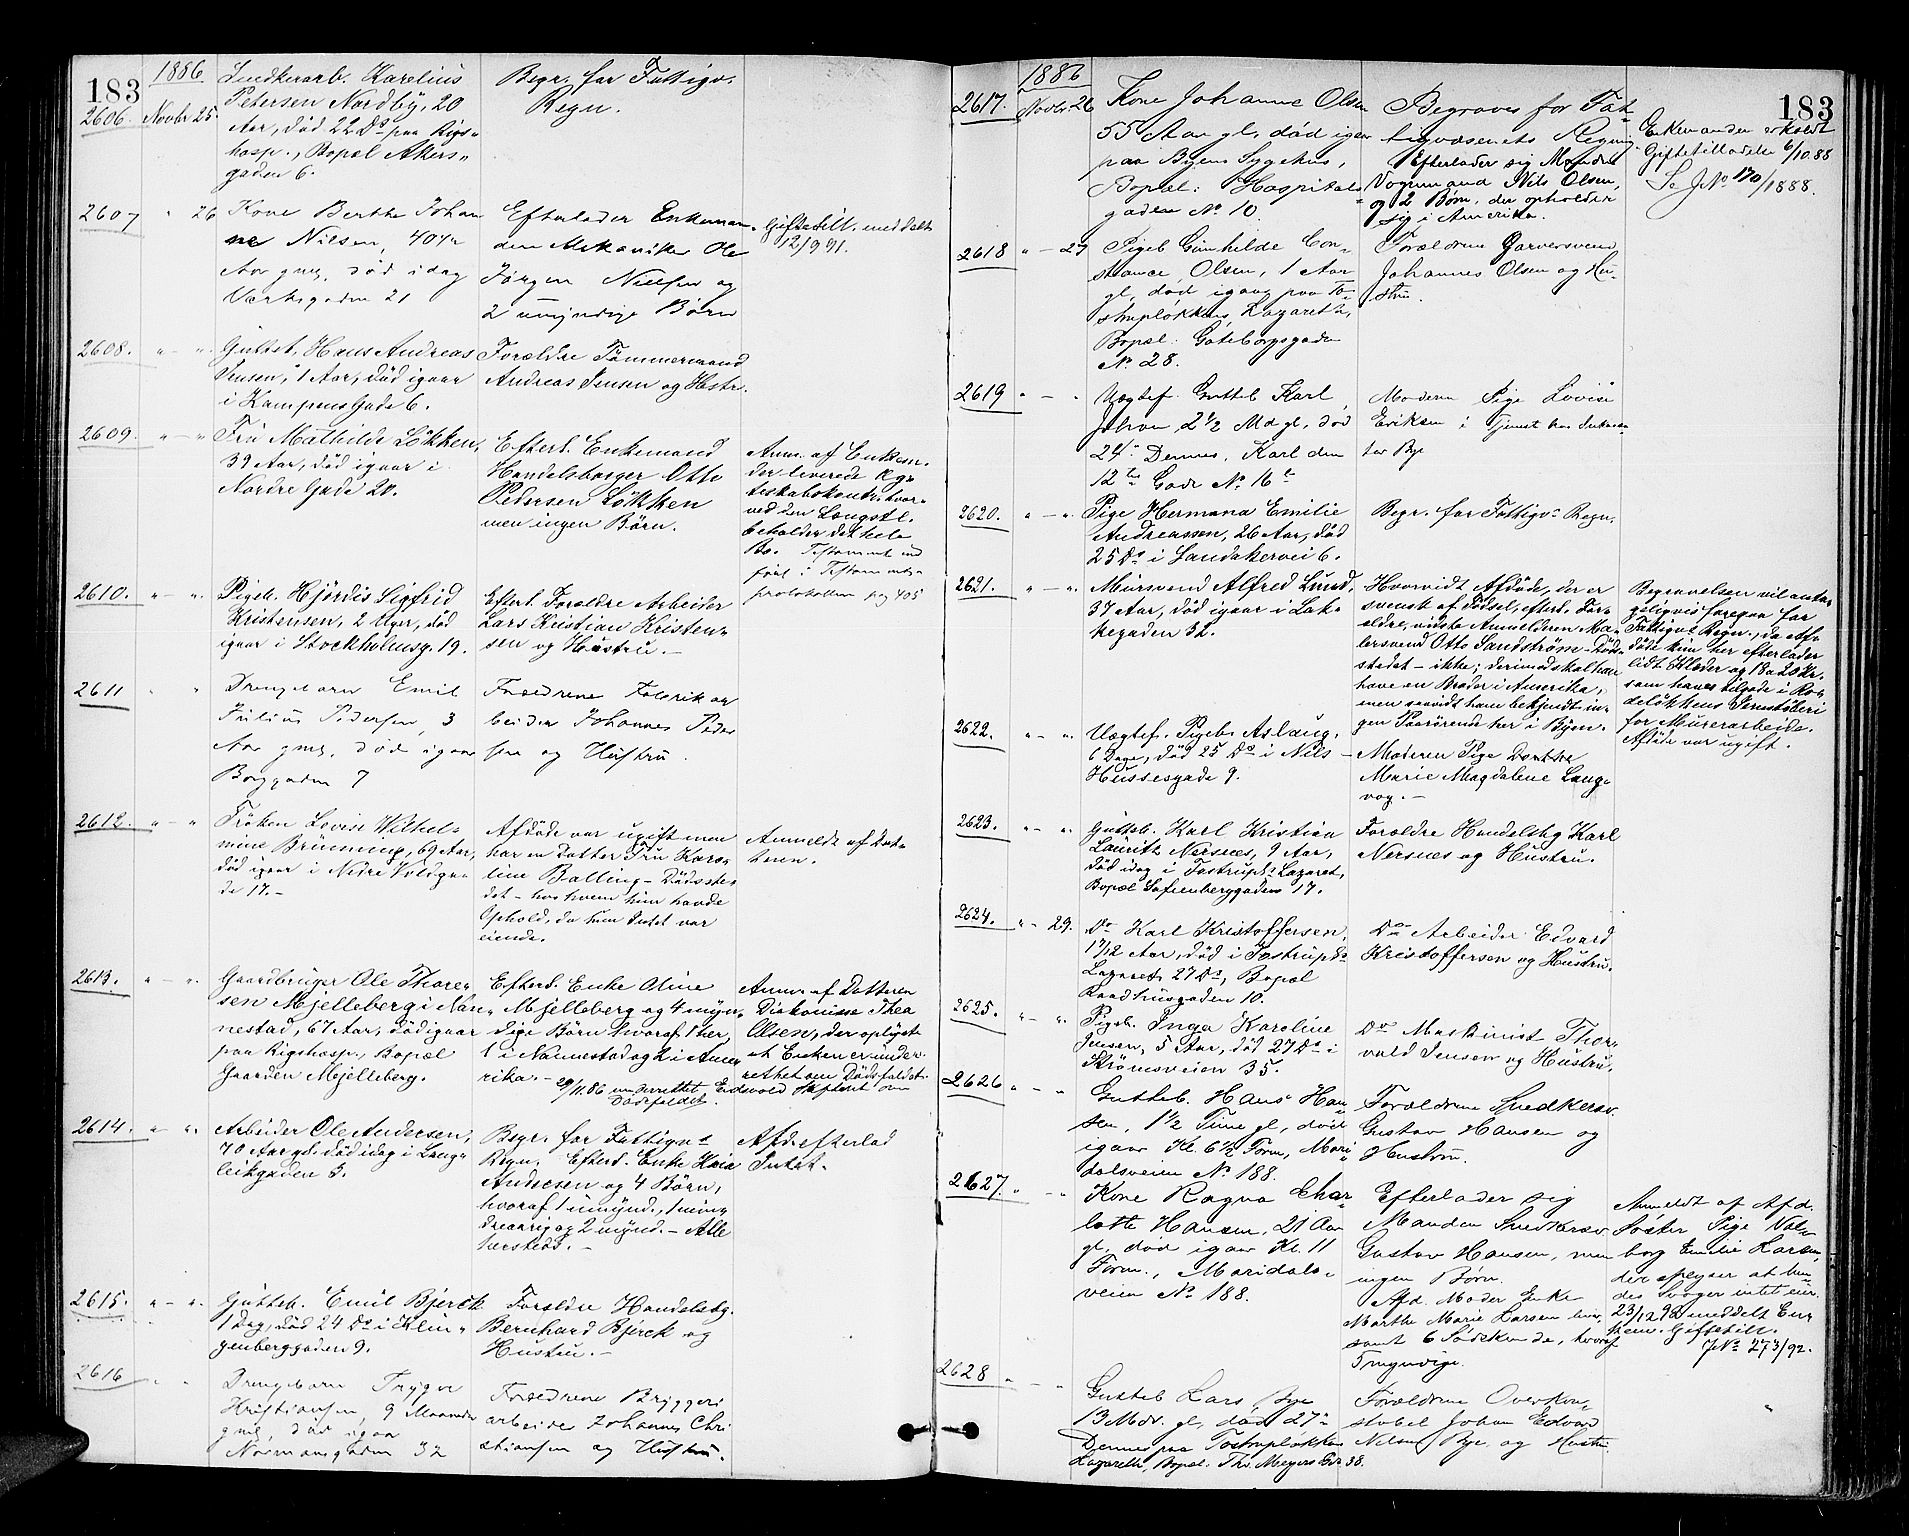 183
1886
2606. Novbr 25.
Snedkerarb. Karelius
Petersen Nordby, 20
Aar, död 22 Ds paa Rigs-
hosp., Bopæl Akers-
gaden 6.
Begr. for Fattigv.
Regn.
2607 " 26
Kone Berthe Johan
ne Nilsen, 40
Aar gml, död idag
Værksgaden 21
Efterlader Enkeman-
den Mekaniker Ole
Jörgen Nielsen og
2 umyndige Börn
Giftetill. meddelt
12/9 91.
2608. " - "
Guttet, Hans Andreas
Jensen, 1 Aar, död igaar
i Kampens Gade 6.
Forældre Tömmermand
Andreas Jensen og Hustr.
2609. " - "
Fru Mathilde Lökken,
39 Aar, död igaar i
Nordre Gade 20.
Efterl. Enkemand
Handelsborger Otto
Pedersen Lökken
men ingen Börn.
Anm. af Enkem.
der leverede
ved den Længstl.
beholder det hele
Bo. Testament ind
fört i Testaments-
protokollen pag 405
2610. " - "
Pigeb. Hjördis Sigfrid
Kristensen, 2 Uger, död
igaar i Stockholmsg. 19.
Efterl. Forældre Arbeider
Lars Kristian Kristen-
sen og Hustru.-
2611 " "
Drengebarn Emil
Julius Pedersen, 3
Aar gml, död igaar
Borggaden 7
Forældrene Fabrikar
beider Johannes Peder
sen og Hustru.
2612. " - "
Fröken Lovise Wilhel-
mine Brünning, 69 Aar,
död igaar i Nedre Voldga-
de 17.-
Afdöde var ugift men
har en Datter Fru Karo-
line Balling - Dödsste-
det - hos hvem hun havde
Ophold, da hun Intet var
eiende.
Anmeldt af Dat-
teren.
2613. " - "
Gaardbruger Ole Thore-
sen Mjelleberg i Nan-
nestad, 67 Aar, död igaar
paa Rigshosp., Bopæl
Gaarden Mjelleberg.
Efterl. Enke Oline
Mjelleberg og 4 myn-
dige Börn hvoraf 1 her,
1 i Nannestad og 2 i Ame
rika.-
29/11 86 underrettet Eidsvold Skifteret om
Dödsfaldet.
Anm. af Datteren
Diakonisse Thea
Olsen, der oplyste
at Enken er under-
rettet om Dödsfaldet.
2614. " - "
Arbeider Ole Andersen,
70 Aar gl. död idag i Lang-
leikgaden 3.
Begr. for Fattigvs
Regn. Efterl. Enke
Andersen og 4 Börn,
hvoraf 1 umynd., 1 min-
dreaarig og 2 mynd. - Alle
hersteds.-
Afd. efterlod
Intet.
2615. " - "
Gutteb. Emil Bjerck
1 Dag, död 24 Ds i Klin-
genberggaden 9.
Forældre Handelsbg.
Bernhard Bjerck og
Hustru.-
2616 " "
Drengebarn Trygve
Kristiansen, 9 Maaneder
gml, död igaar
Normansgaden 32
Forældrene Bryggeri
arbeider Johannes Chri
stiansen og Hustru.
183
1886
2617. Novbr. 26
Kone Johanne Olsen
55 Aar gl, död igaar
paa Byens Sygehus,
Bopæl: Hospitals-
gaden No 10.
Begraves for Fat-
tigvæsenets Regning
Efterlader sig Manden
Vognmand Nils Olsen,
og 2 Börn, der opholder
sig i Amerika.
Enkemanden erholdt
Giftetilladelse 6/10.88
Se JNo 170/1888.
2618 " - 27
Pigeb Gunhilde Con-
stance Olsen, 1 Aar
gl, död igaar paa To-
strupløkkens Lazareth,
Bopæl. Göteborgsgaden
No 28.
Forældrene Garversvend
Johannes Olsen og Hu-
stru.
2619 " - "
Uægtef. Gutteb Karl
Johan 2 1/2 Md gl, död
24de Dennes, Karl den
12tes Gade No 16
Moderen Pige Lovise
Eriksen i Tjeneste hos
Bye
2620. " - "
Pige Hermana Emilie
Andreassen, 26 Aar, död
25 Ds i Sandakervei 6.
Begr. for Fattigvs Regn.
2621. " - "
Mursvend Alfred Lund,
37 Aar, död igaar i Lak-
kegaden 32.
Hvorvidt Afdöde, der er
svensk af Födsel, efterl. For-
ældre, vidste Anmelderen Ma-
lersvend Otto Sandström - Döds-
stedet - ikke; derimod skal han
have en Broder i Amerika,
men saavidt ham bekjendt in-
gen Paarörende her i Byen.
Begravelsen vil antar
geligvis foregaa for
Fattigvs Regn., da Af-
döde kun her efterlader
lidt Klæder og 18 a 20 Kr.
som haves tilgode i Ro-
delökkens Stenhöberi
for Murerarbeide.
Afdöde var ugift.
2622. " - "
Uægtef. Pigeb. Aslaug.
6 Dage, död 25 Ds i Nils
Hussesgade 9.
Moderen Pige Dorthea
Marie Magdalene Lang-
vog.-
2623. " - "
Gutteb. Karl Kristian
Lauritz Nersnes, 9 Aar,
död idag i Tostrups Lazaret,
Bopæl Sofienberggaden 17.
Forældre Handelsbg Karl
Nersnes og Hustru.
2624. " - 29.
Do Karl Kristoffersen,
1 7/12 Aar, död i Tostrups
Lazaret 27 Ds, Bopæl
Raadhusgaden 10.
Do Arbeider Edvard
Kristoffersen og Hustru.
2625. " - "
Pigeb. Inga Karoline
Jensen, 5 Aar, död 27 Ds i
Strömsveien 35.
Do Maskinist Thor-
vald Jensen og Hustru.
2626 " - "
Gutteb. Hans Han
sen, 1 1/2 Time gl, död
igaar Kl. 6 1/2 Form, Mari
dalsveien No 188.
Forældrene Snedkersv.
Gustav Hansen og
Hustru.
2627. " - "
Kone Ragna Char
lotte Hansen, 21 Aar
gl, död igaar Kl. 11
Form., Maridals-
veien No 188.
Efterlader sig
Manden Snedkersv
Gustav Hansen, men
ingen Børn.
Afd. Moder Enke
Marthe Marie Larsen lever,
samt 6 Sødskende, hvoraf
5 myndige.
Anmeldt af Afd.
Søster Pige Val-
borg Emilie Larsen,
der oplyser at hen-
des Svoger intet eier.
23/12 92 meddelt En-
kem. Giftetill.
JNo 273/92.
2628 " "
Gutteb Lars Bye
13 Mdr. gl, död 27de
Dennes paa Tostrupløkkens
Lazareth, Bopæl. Thv. Meyers Gd. 38.
Forældrene Overkon-
stabel Johan Edvard
Nilsen Bye og Hustru